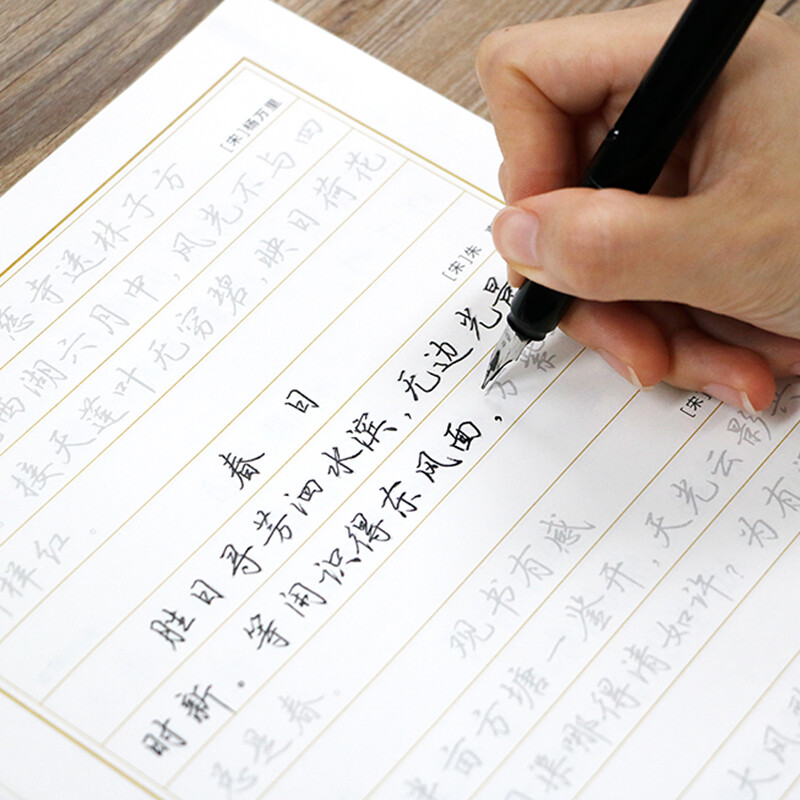 [宋]杨万里
慈寺送林子方
西湖六月中，风光不与四
接天莲叶无穷碧，映日荷花
样红。
[宋]朱
春 日
胜日寻芳泗水滨，无边光景
时新。等闲识得东风面，万紫
总是春。
[宋]
观书有感
半亩方塘一鉴开，天光云影
渠哪得清如许？为有
大风